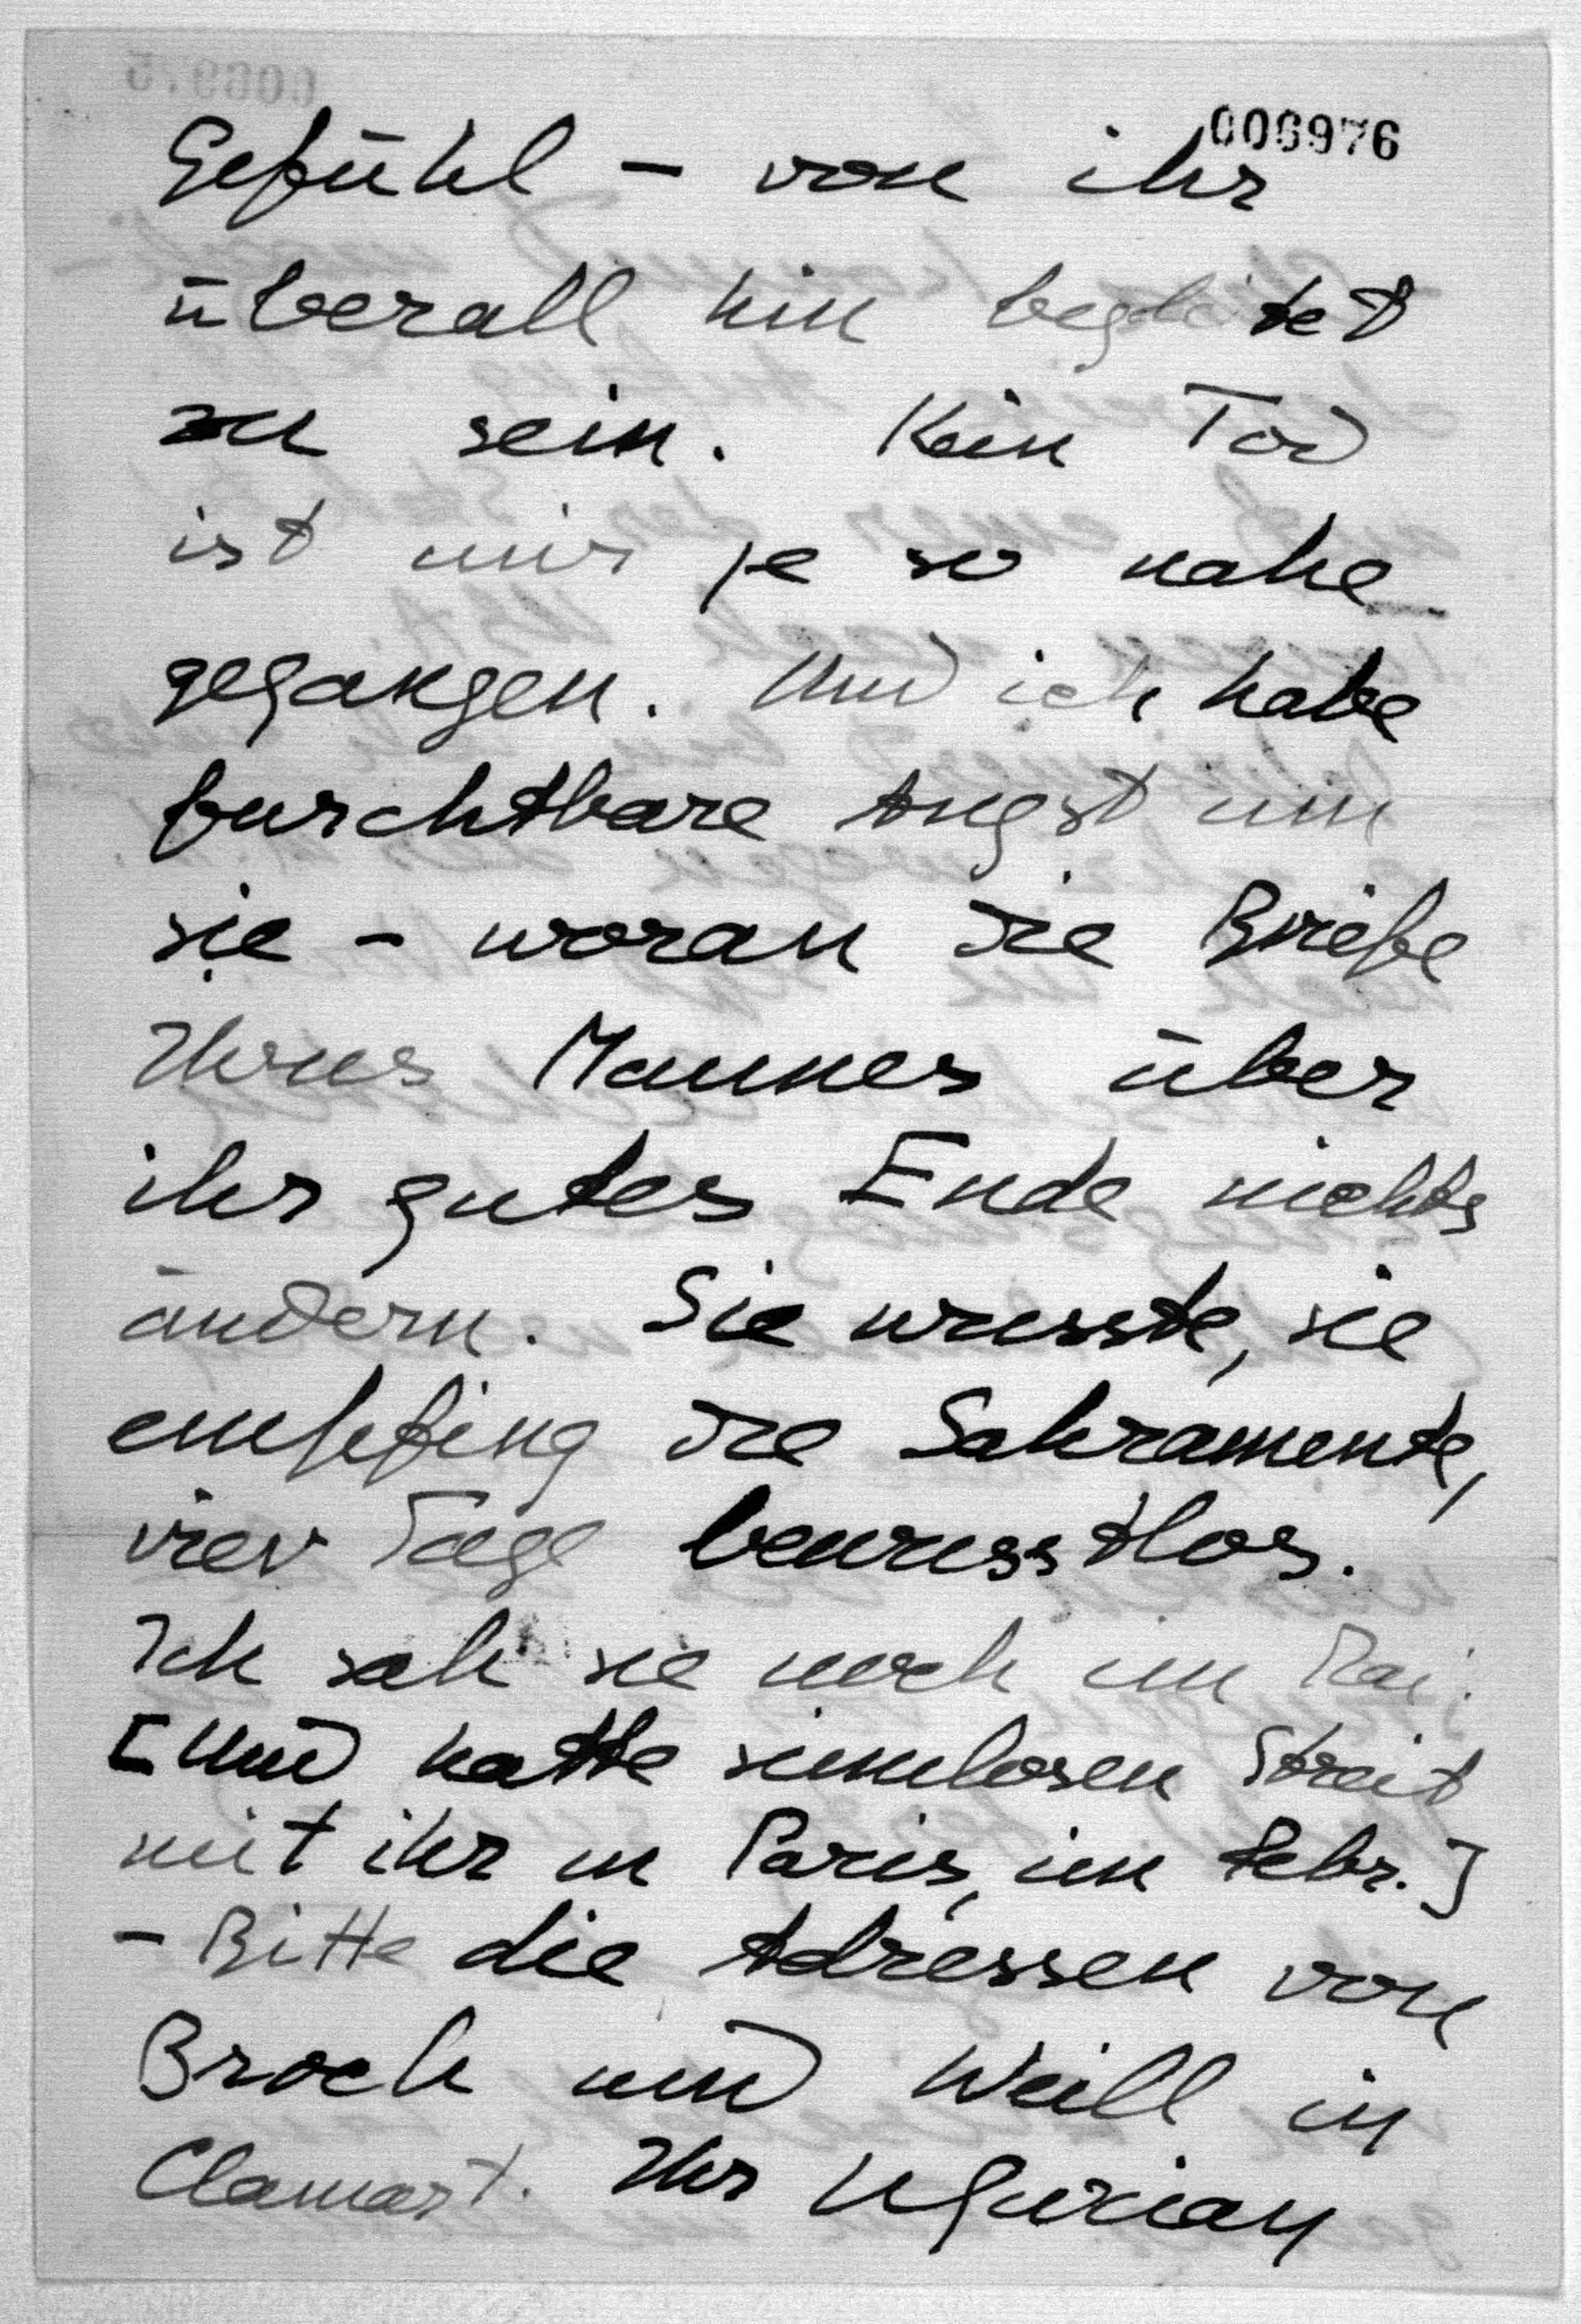 006976
Gefühl - von ihr
überall hin begleitet
zu sein. Kein Tod
ist mir je so nahe
gegangen. Und ich habe
furchtbare Angst um
sie - woran die Briefe
Ihres Mannes über
ihr gutes Ende nichts
ändern. Sie wusste, sie
empfing die Sakramente,
vier Tage bewusstlos.
Ich sah sie noch im Mai.
[Und hatte sinnlosen Streit
mit ihr in Paris, im Febr.]
- Bitte die Adressen von
Broch und Weill in
Clamart. Ihr